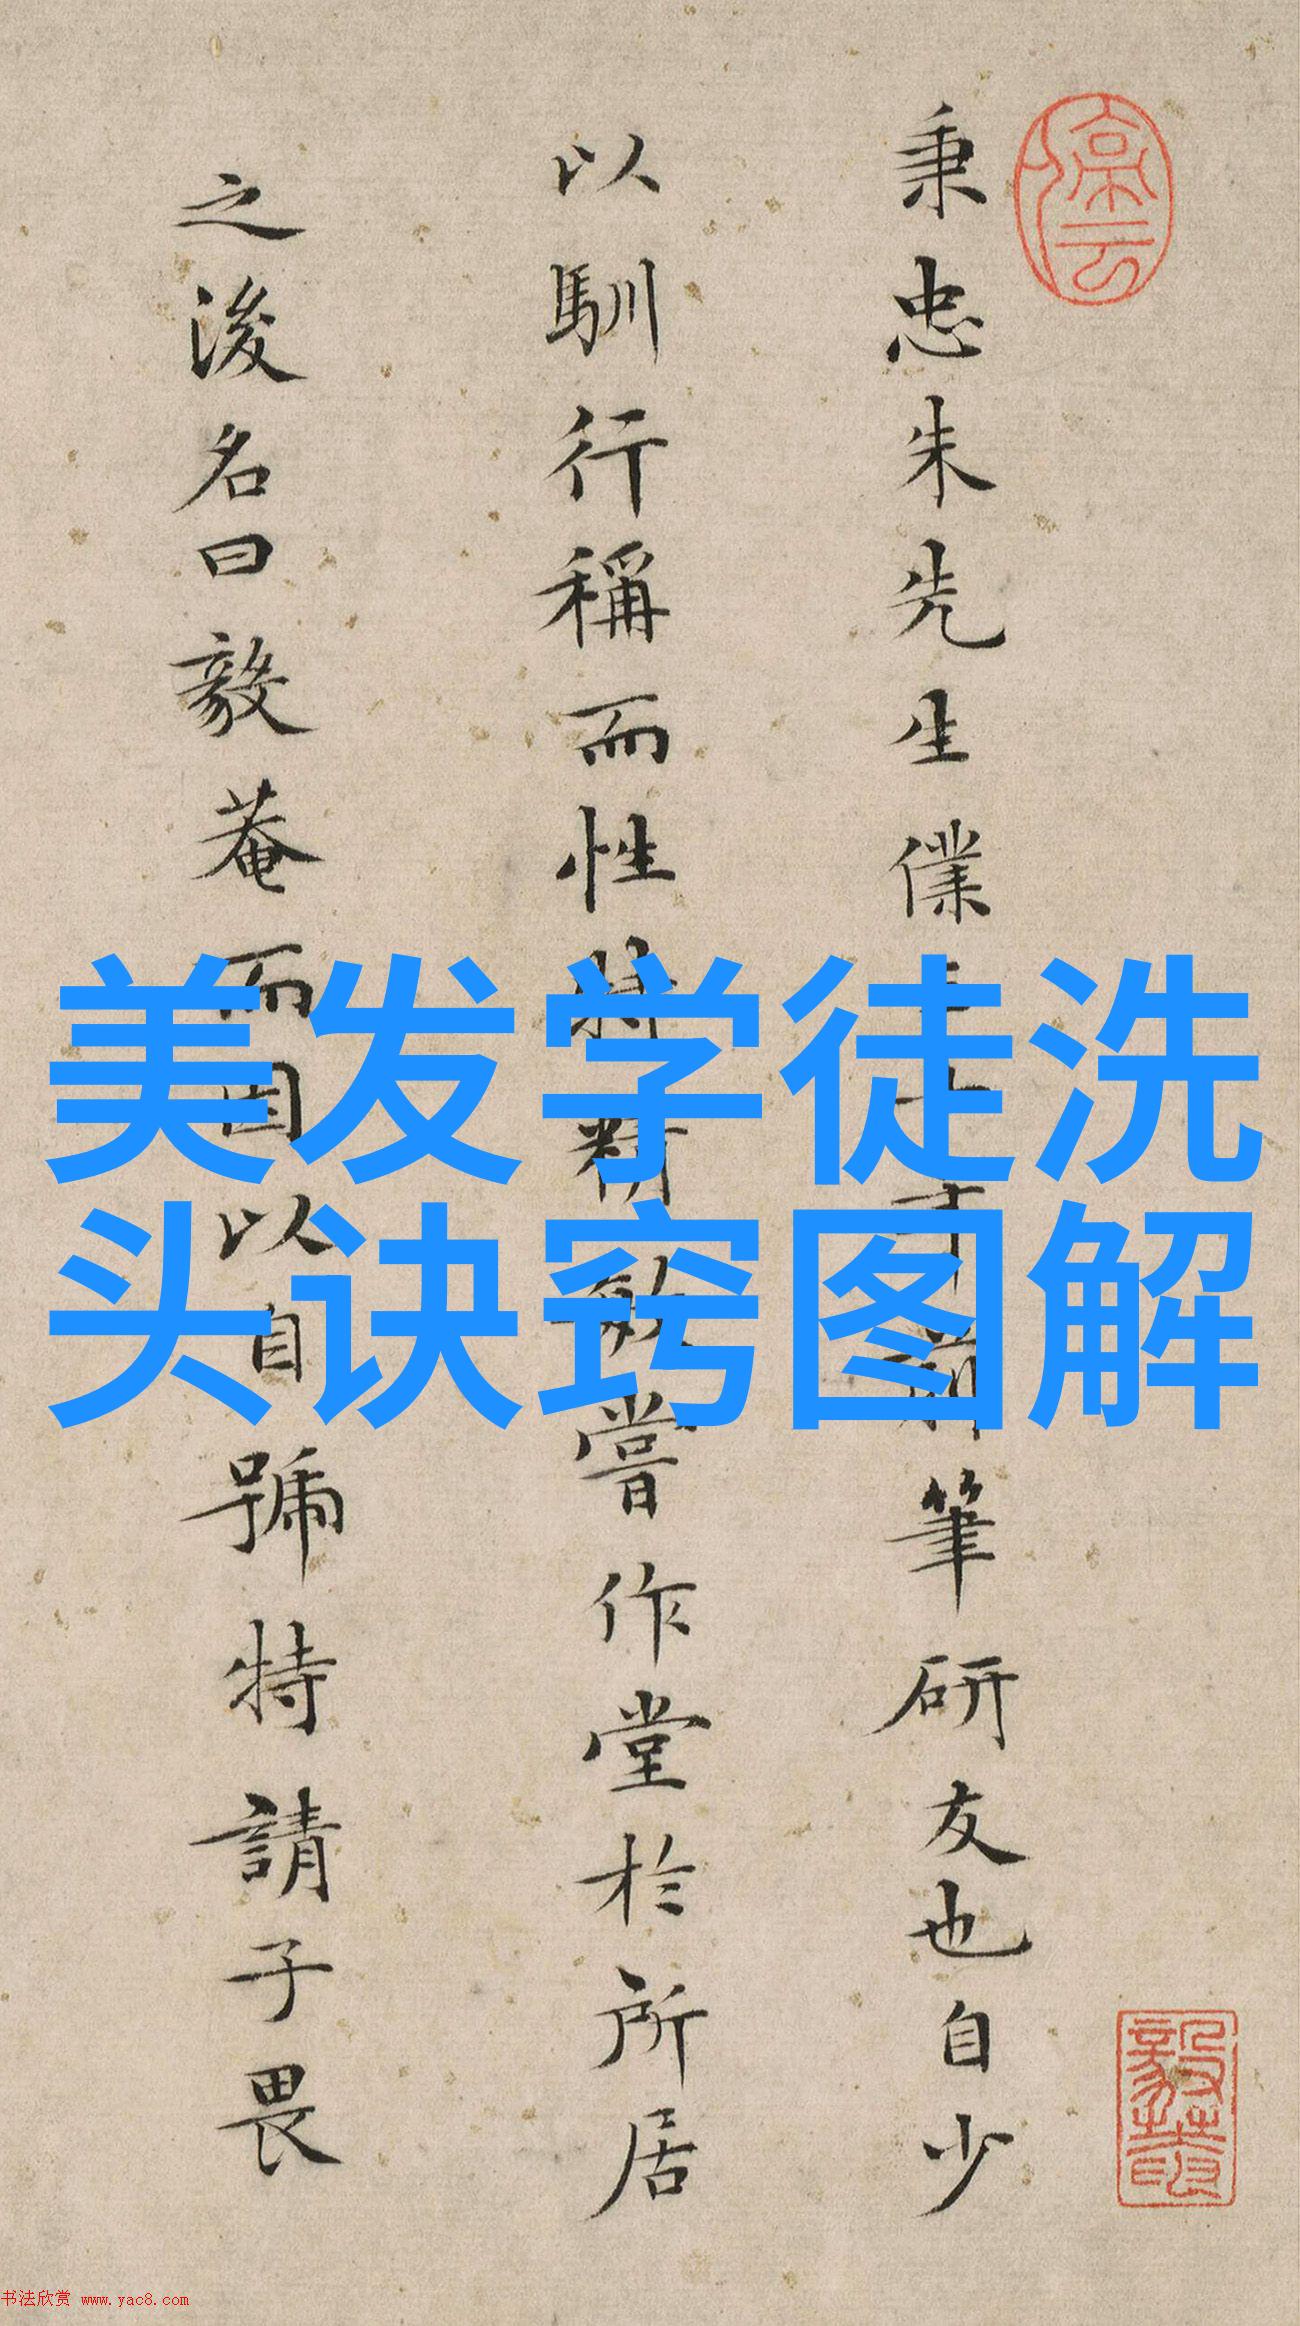 停云
秉忠朱先生僕三十年前筆研友也自少
以馴行稱而性特精敏嘗作堂於所居
之後名曰毅菴而因以自號特請子畏
美发学徒洗
头诀窍图解
书法欣赏 www.yac8.com